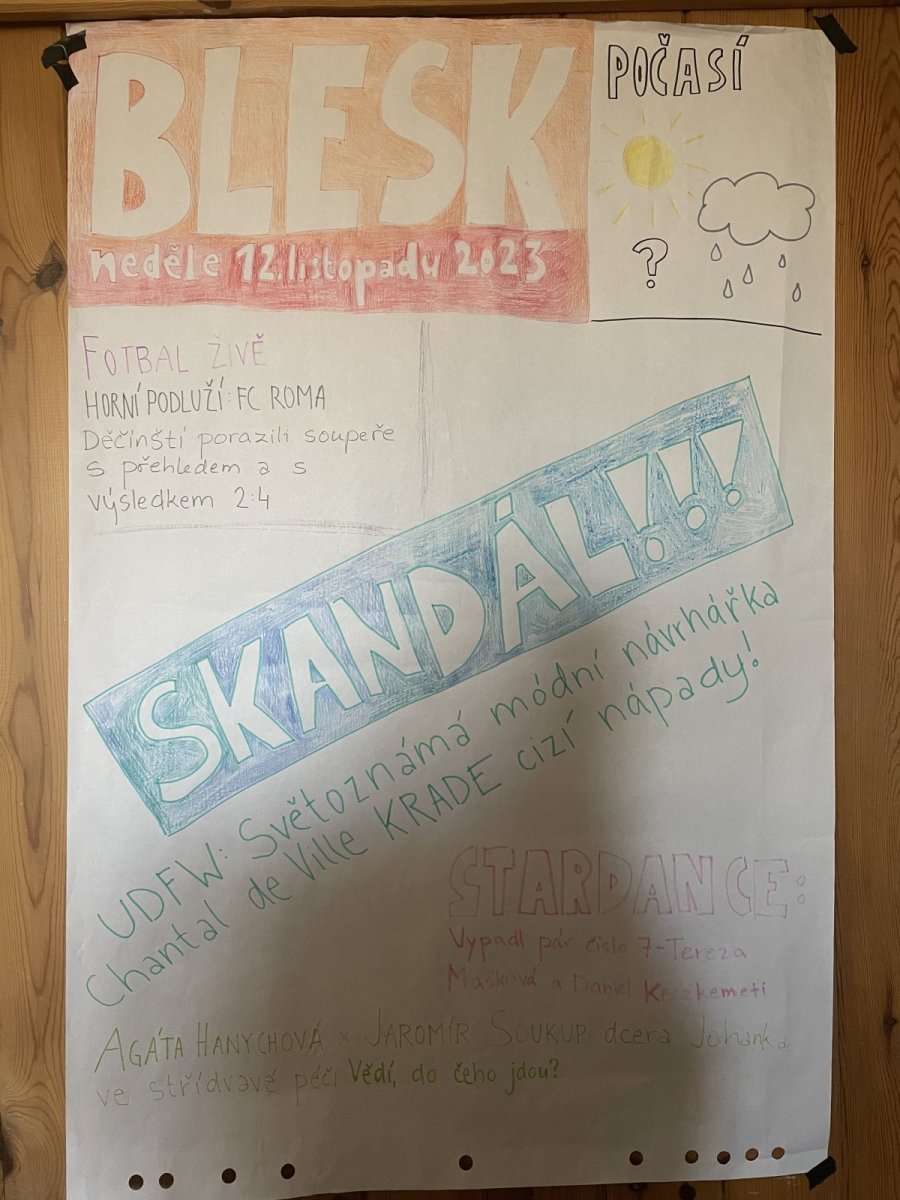 BLESK
neděle 12. listopadu 2023
POČASÍ
?
FOTBAL ŽIVĚ
HORNÍ PODLUŽÍ: FC ROMA
Děčínští porazili soupeře
s přehledem a s
výsledkem 2:4
SKANDÁL!!!
UDFW: Světoznámá módní návrhářka
Chantal de Ville KRADE cizí nápady!
STARDANCE:
Vypadl pár číslo 7-Tereza
Mašková a Daniel Keczkemeti
AGÁTA HANYCHOVÁ x JAROMÍR SOUKUP dcera Johanka
ve střídvavé péči Vědí, do čeho jdou?